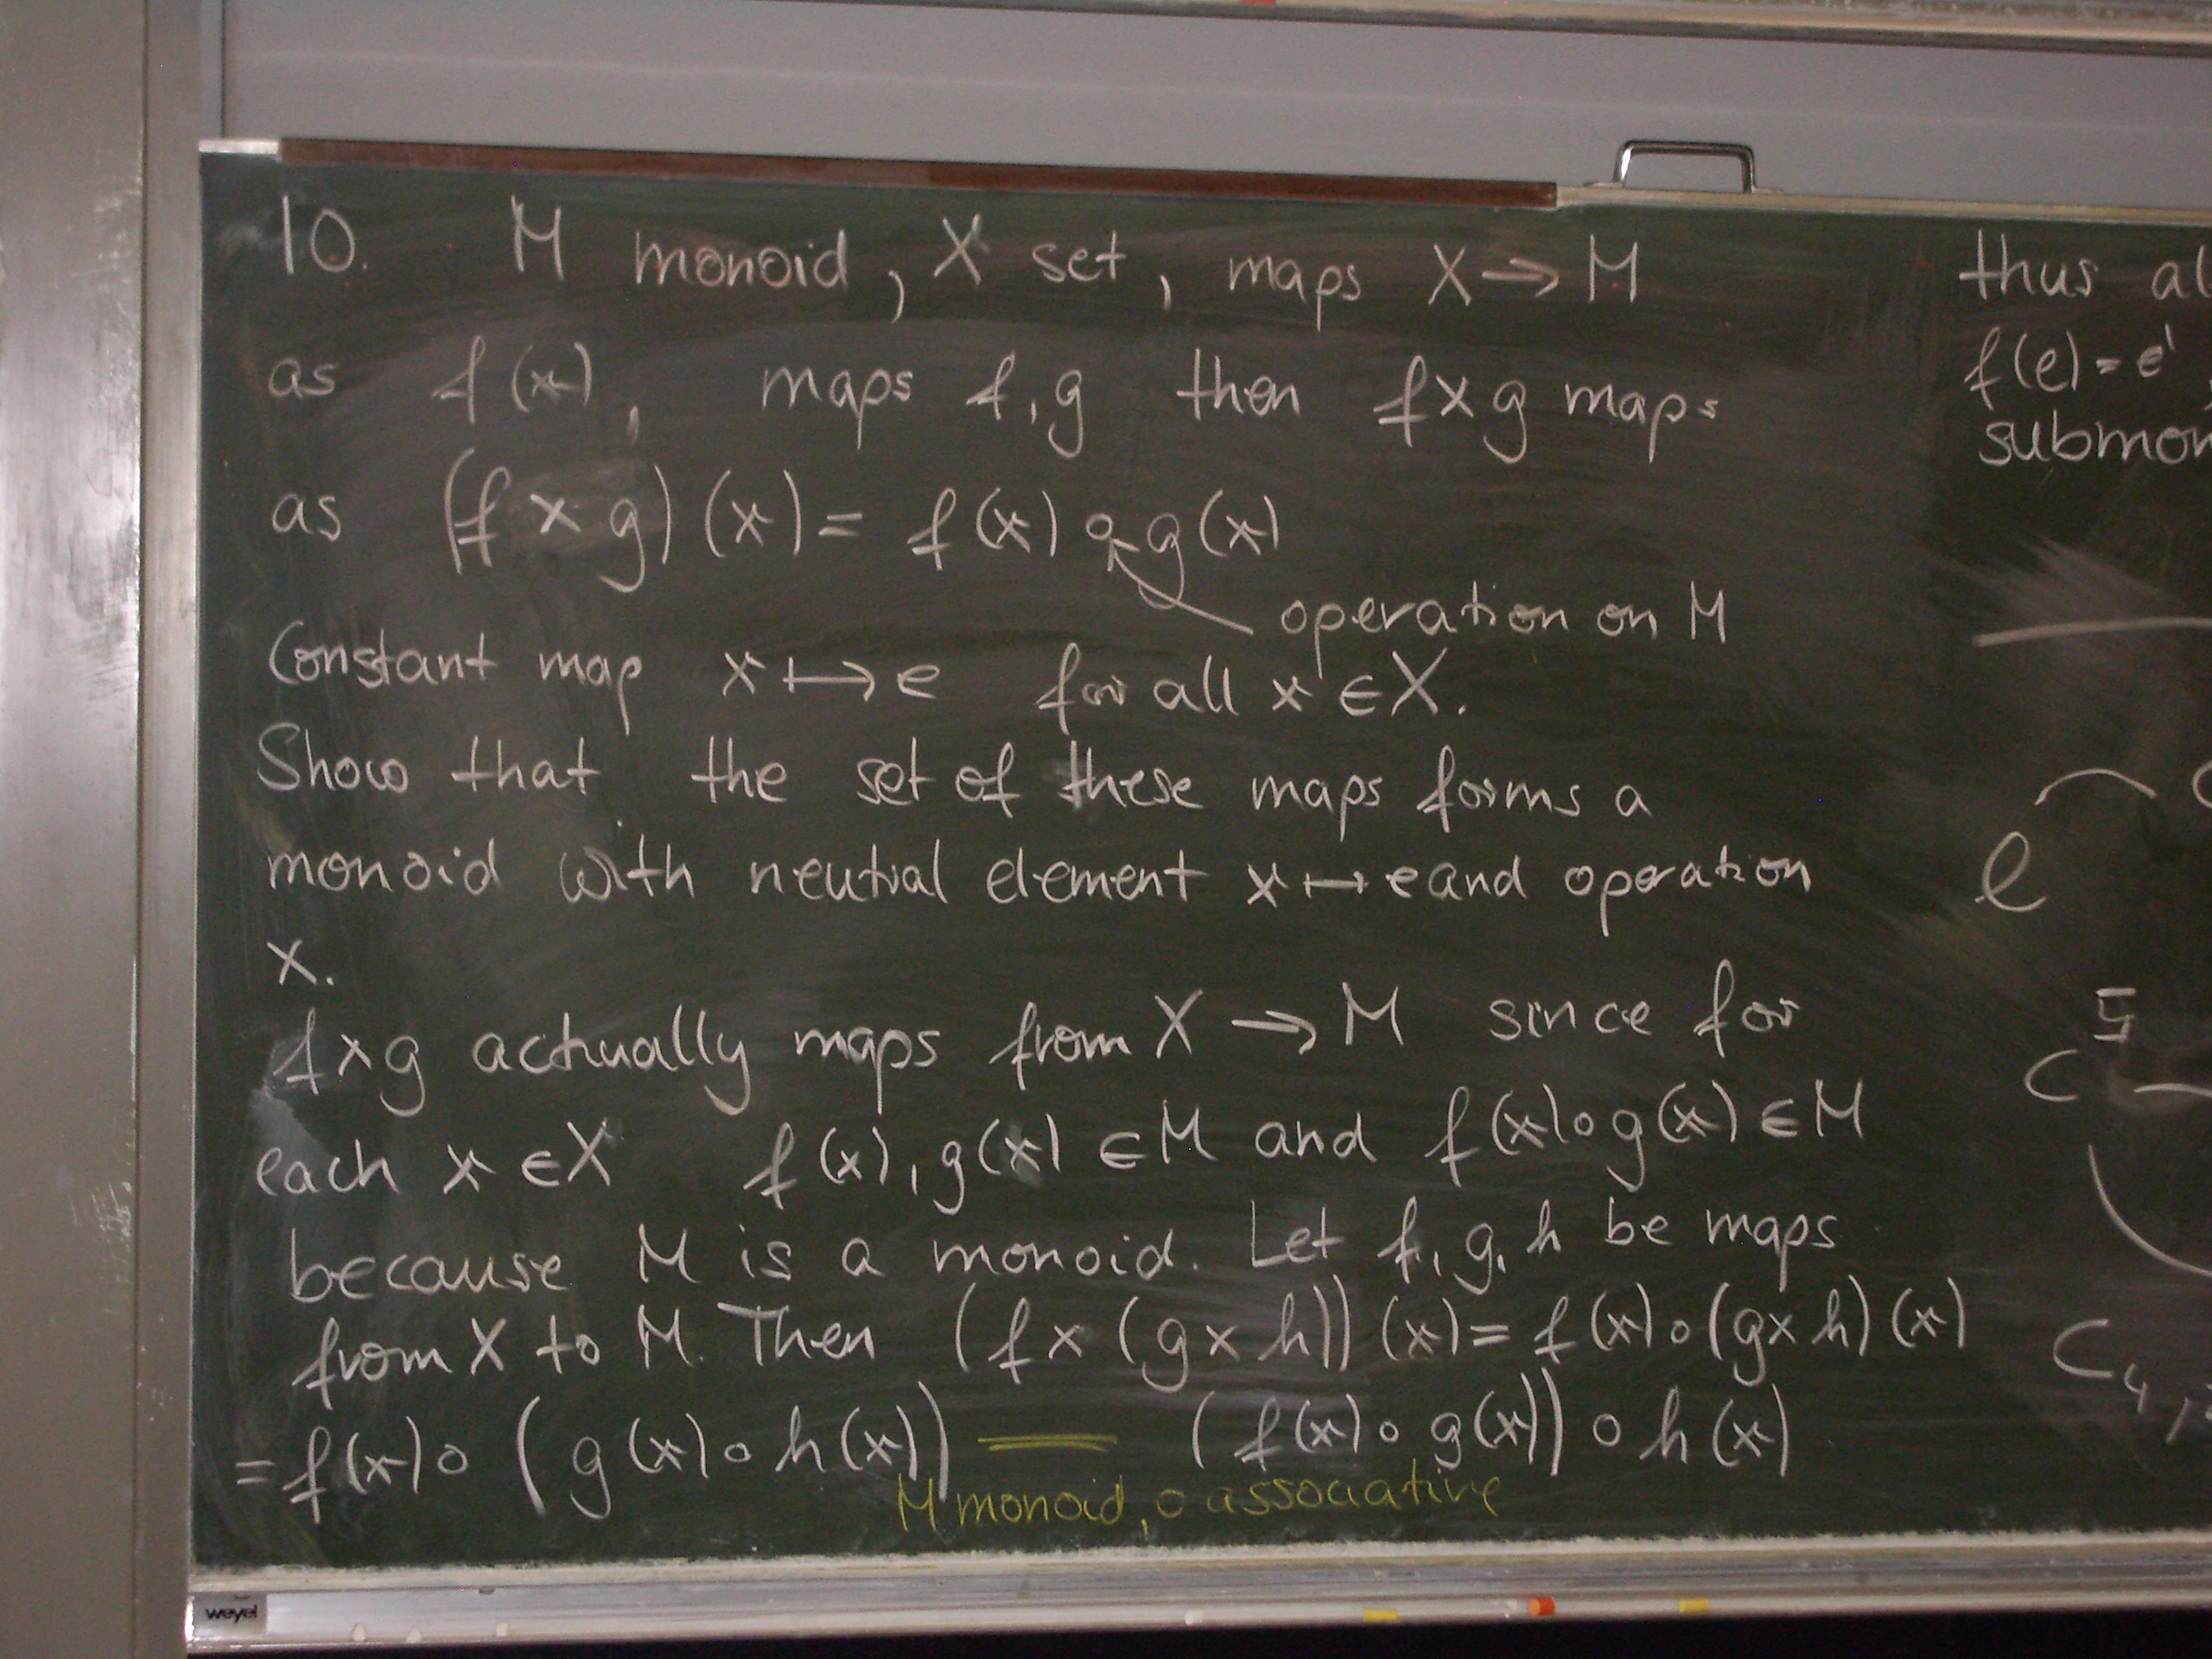 10. M monoid, X set, maps X → M
as f(x), maps f, g then f x g maps
as (f x g)(x) = f(x) ∘ g(x)
operation on M
Constant map x ↦ e for all x ∈ X.
Show that the set of these maps forms a
monoid with neutral element x ↦ e and operation
x.
f x g actually maps from X → M since for
each x ∈ X f(x), g(x) ∈ M and f(x) ∘ g(x) ∈ M
because M is a monoid. Let f, g, h be maps
from X to M. Then (f x (g x h))(x) = f(x) ∘ (g x h)(x)
= f(x) ∘ (g(x) ∘ h(x)) = (f(x) ∘ g(x)) ∘ h(x)
M monoid, ∘ associative
thus
f(e) = e'
e
C
C4,
weyel